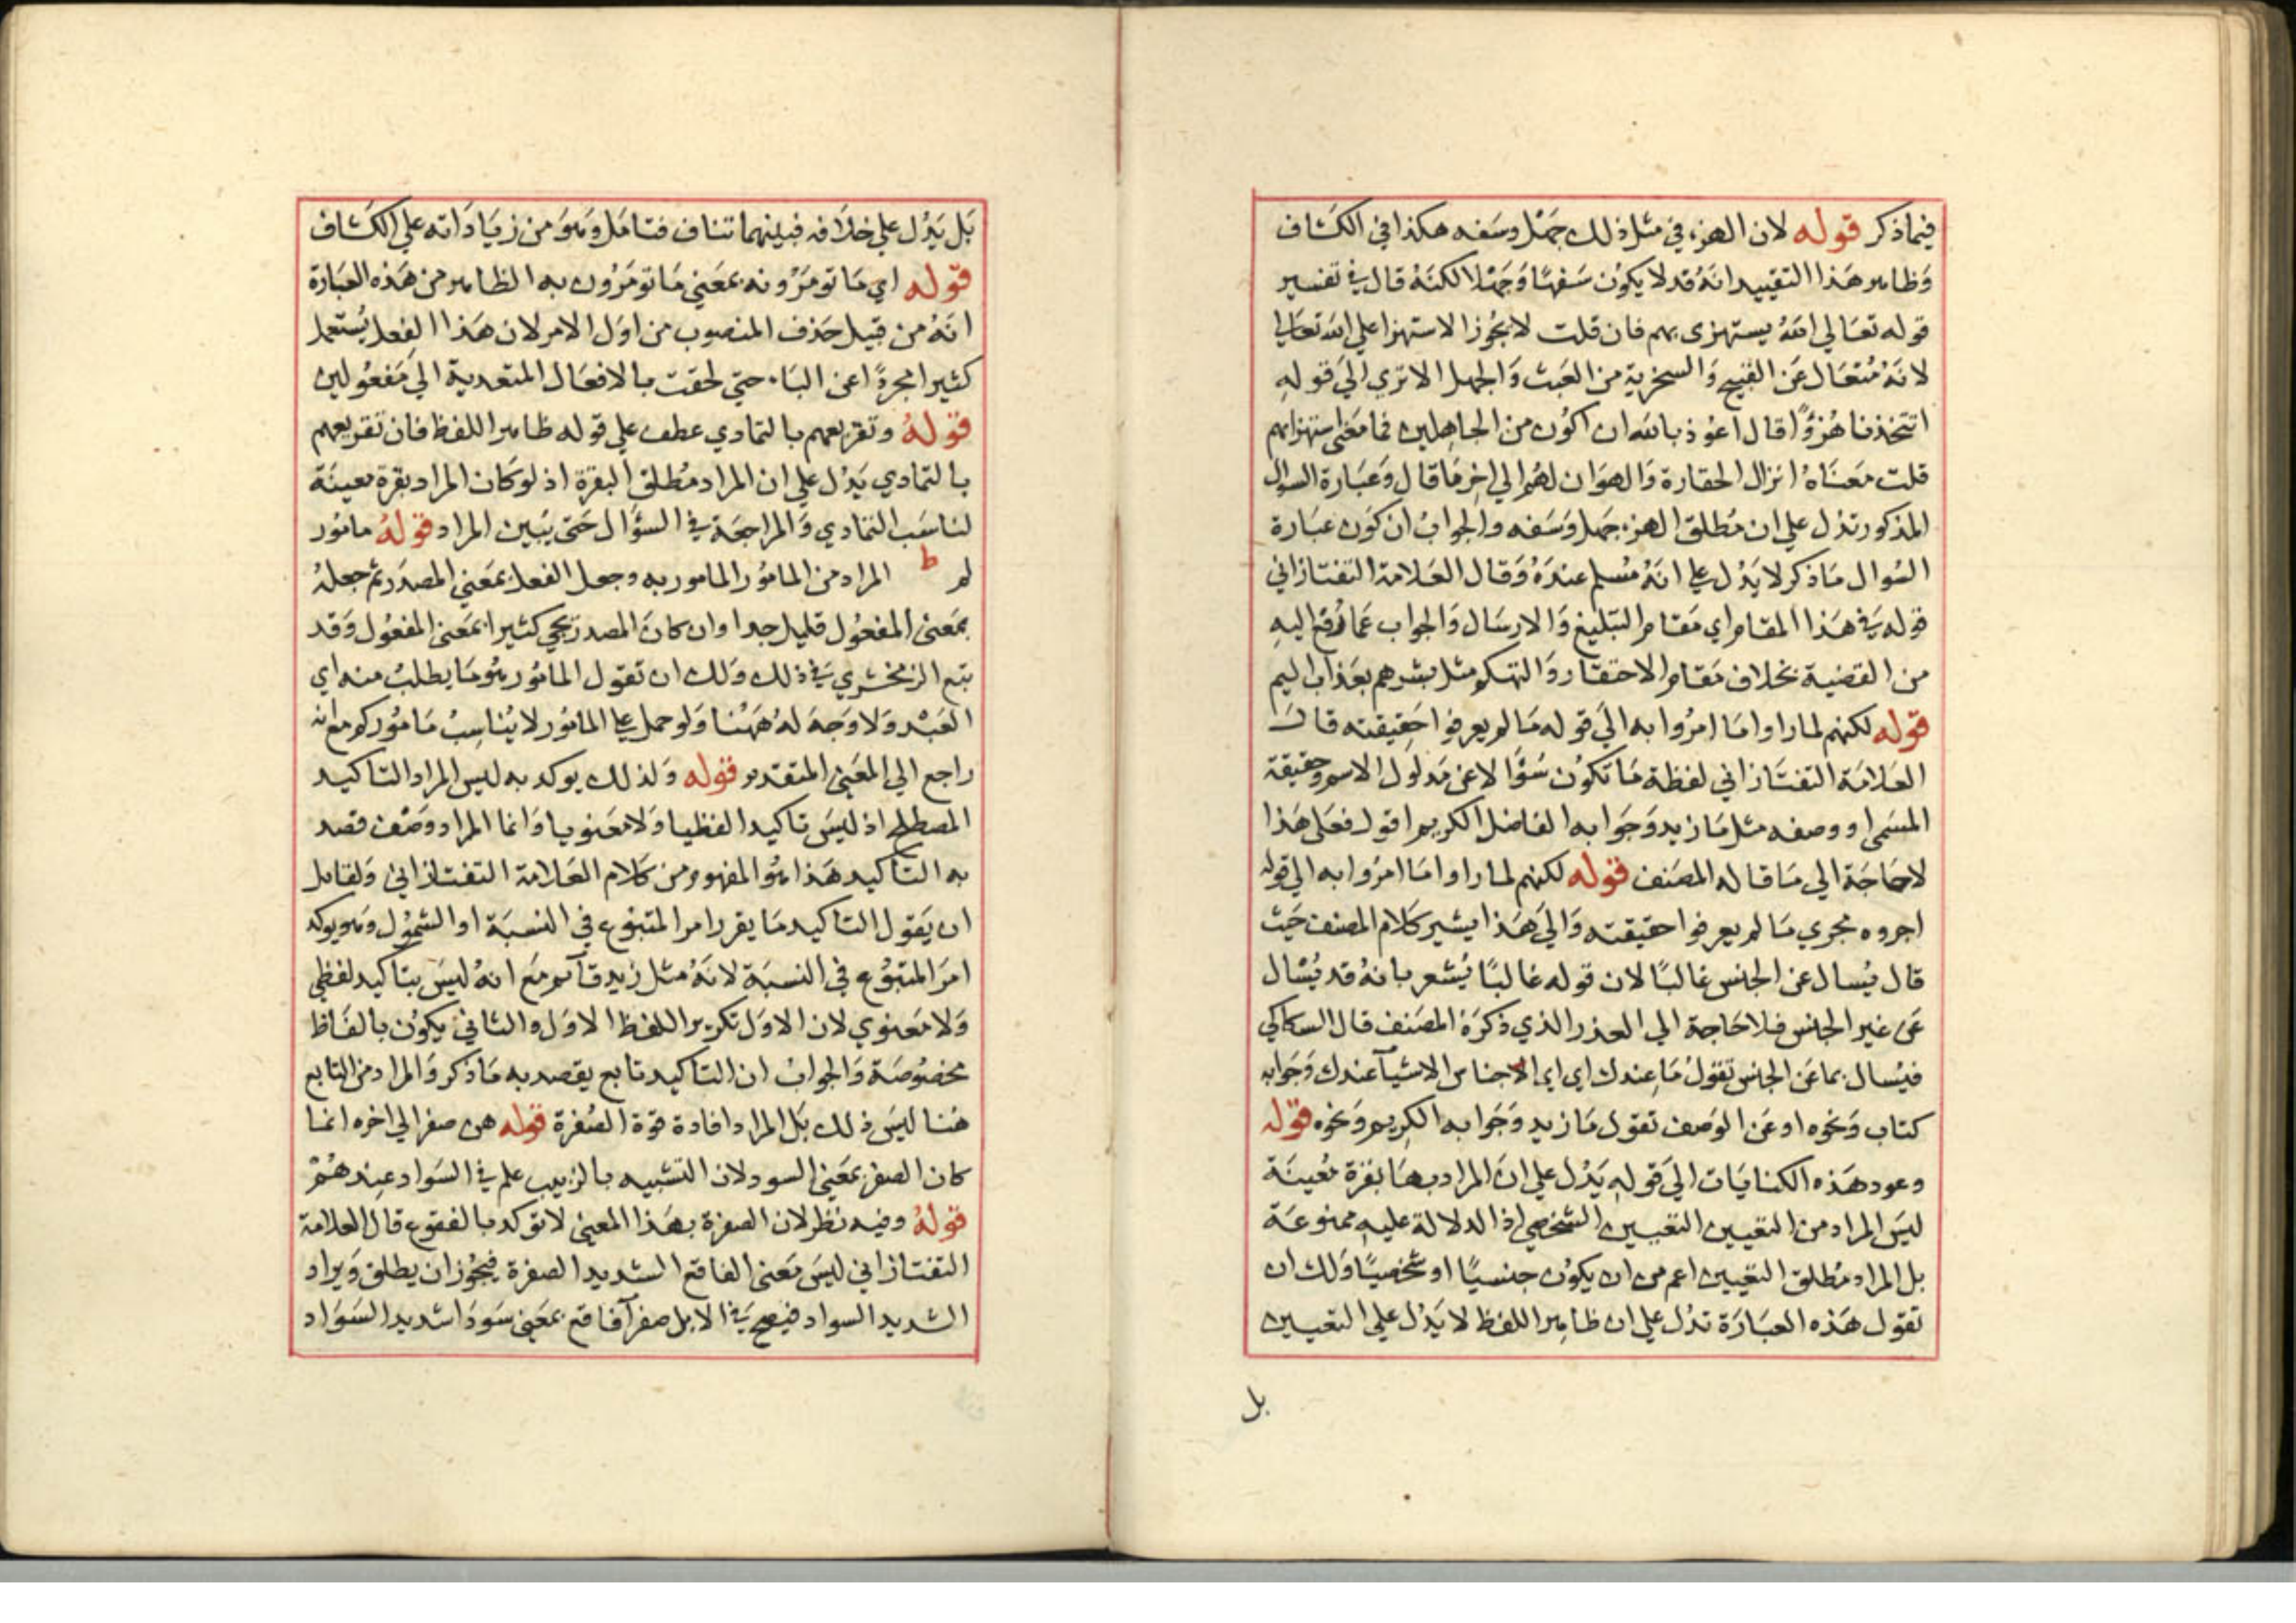 فيما ذكر قوله لان الهزء في مثل ذلك جهل وسفه هكذا في الكشاف
وظاهر هذا التقييد انه قد لا يكون سفها وجهلا لكنه قال في تفسير
قوله تعالي الله يستهزى بهم فان قلت لا يجوز الاستهزا علي الله تعالي
لانه متعال عن القبيح والسخرية من العبث والجهل الا تري الي قوله
اتتخذنا هزؤا قال اعوذ بالله ان اكون من الجاهلين فما معنى استهزائهم
قلت معناه انزال الحقارة والهوان لهم الي اخر ما قال وعبارة السوال
المذكور تدل علي ان مطلق الهزء جهل وسفه والجواب ان كون عبارة
السوال ما ذكر لا يدل علي انه مسلم عنده وقال العلامة التفتازاني
قوله في هذا المقام اي مقام التبليغ والارسال والجواب عما رفع اليه
من القضية بخلاف مقام الاحتقار والتهكم مثل بشرهم بعذاب اليم
قوله لكنهم لما راوا ما امروا به الي قوله ما لم يعرفوا حقيقته قال
العلامة التفتازاني لفظة ما تكون سؤالا عن مدلول الاسم وحقيقة
المسمى او وصفه مثل ما زيد وجوابه الفاضل الكريم اقول فعلى هذا
لا حاجة الي ما قاله المصنف قوله لكنهم لما راوا ما امروا به الي قوله
اجروه مجري ما لم يعرفوا حقيقته والي هذا يشير كلام المصنف حيث
قال يسال عن الجنس غالبا لان قوله غالبا يشعر بانه قد يسال
عن غير الجنس فلا حاجة الي العذر الذي ذكره المصنف قال السكاكي
فيسال بما عن الجنس تقول ما عندك اي اي الاجناس الاشيآ عندك وجوابه
كتاب ونحوه او عن الوصف تقول ما زيد وجوابه الكريم ونحوه قوله
وعود هذه الكنايات الي قوله يدل علي ان المراد بها بقرة معينة
ليس المراد من التعيين التعيين الشخصي اذ الدلالة عليه ممنوعة
بل المراد مطلق التعيين اعم من ان يكون جنسيا او شخصيا ولك ان
تقول هذه العبارة تدل علي ان ظاهر اللفظ لا يدل علي التعيين
بل
بل يدل علي خلافه فبينهما تناف فتامل وهو من زياداته علي الكشاف
قوله اي ما تومرونه بمعني ما تومرون به الظاهر من هذه العبارة
انه من قبيل حذف المنصوب من اول الامر لان هذا الفعل يستعمل
كثيرا مجردا عن البا، حتي لحقت بالافعال المتعدية الي مفعولين
قوله وتقريعهم بالتمادي عطف علي قوله ظاهر اللفظ فان تقريعهم
بالتمادي يدل علي ان المراد مطلق البقرة اذ لو كان المراد بقرة معينة
لناسب التمادي والمراجعة في السؤال حتى يبين المراد قوله مامور
لم ط المراد من المامور المامور به وجعل الفعل بمعني المصدر ثم جعله
بمعنى المفعول قليل جدا وان كان المصدر يجي كثيرا بمعنى المفعول وقد
تبع الزمخشري في ذلك ولك ان تقول المامور هو ما يطلب منه اي
العبد ولا وجه له ههنا ولو حمل علي المامور لا يناسب ماموركم مع انه
راجع الي المعنى المتقدم قوله ولذلك يوكد به ليس المراد التاكيد
المصطلح اذ ليس تاكيدا لفظيا ولا معنويا وانما المراد وصف قصد
به التاكيد هذا هو المفهوم من كلام العلامة التفتازاني ولقايل
ان يقول التاكيد ما يقرر امر المتبوع في النسبة او الشمول وهو يوكد
امر المتبوع في النسبة لانه مثل زيد قآئم مع انه ليس بتاكيد لفظي
ولا معنوي لان الاول تكرير اللفظ الاول والثاني يكون بالفاظ
مخصوصة والجواب ان التاكيد تابع يقصد به ما ذكر والمراد من التابع
هنا ليس ذلك بل المراد افادة قوة الصفرة قوله هن صفر الي اخره انما
كان الصفر بمعني السود لان التشبيه بالزبيب علم في السواد عندهم
قوله وفيه نظر لان الصفرة بهذا المعني لا توكد بالفقوع قال العلامة
التفتازاني ليس معنى الفاقع الشديد الصفرة فيجوز ان يطلق ويراد
الشديد السواد فيصح في الابل صفرآ فاقع بمعني سودا شديد السواد